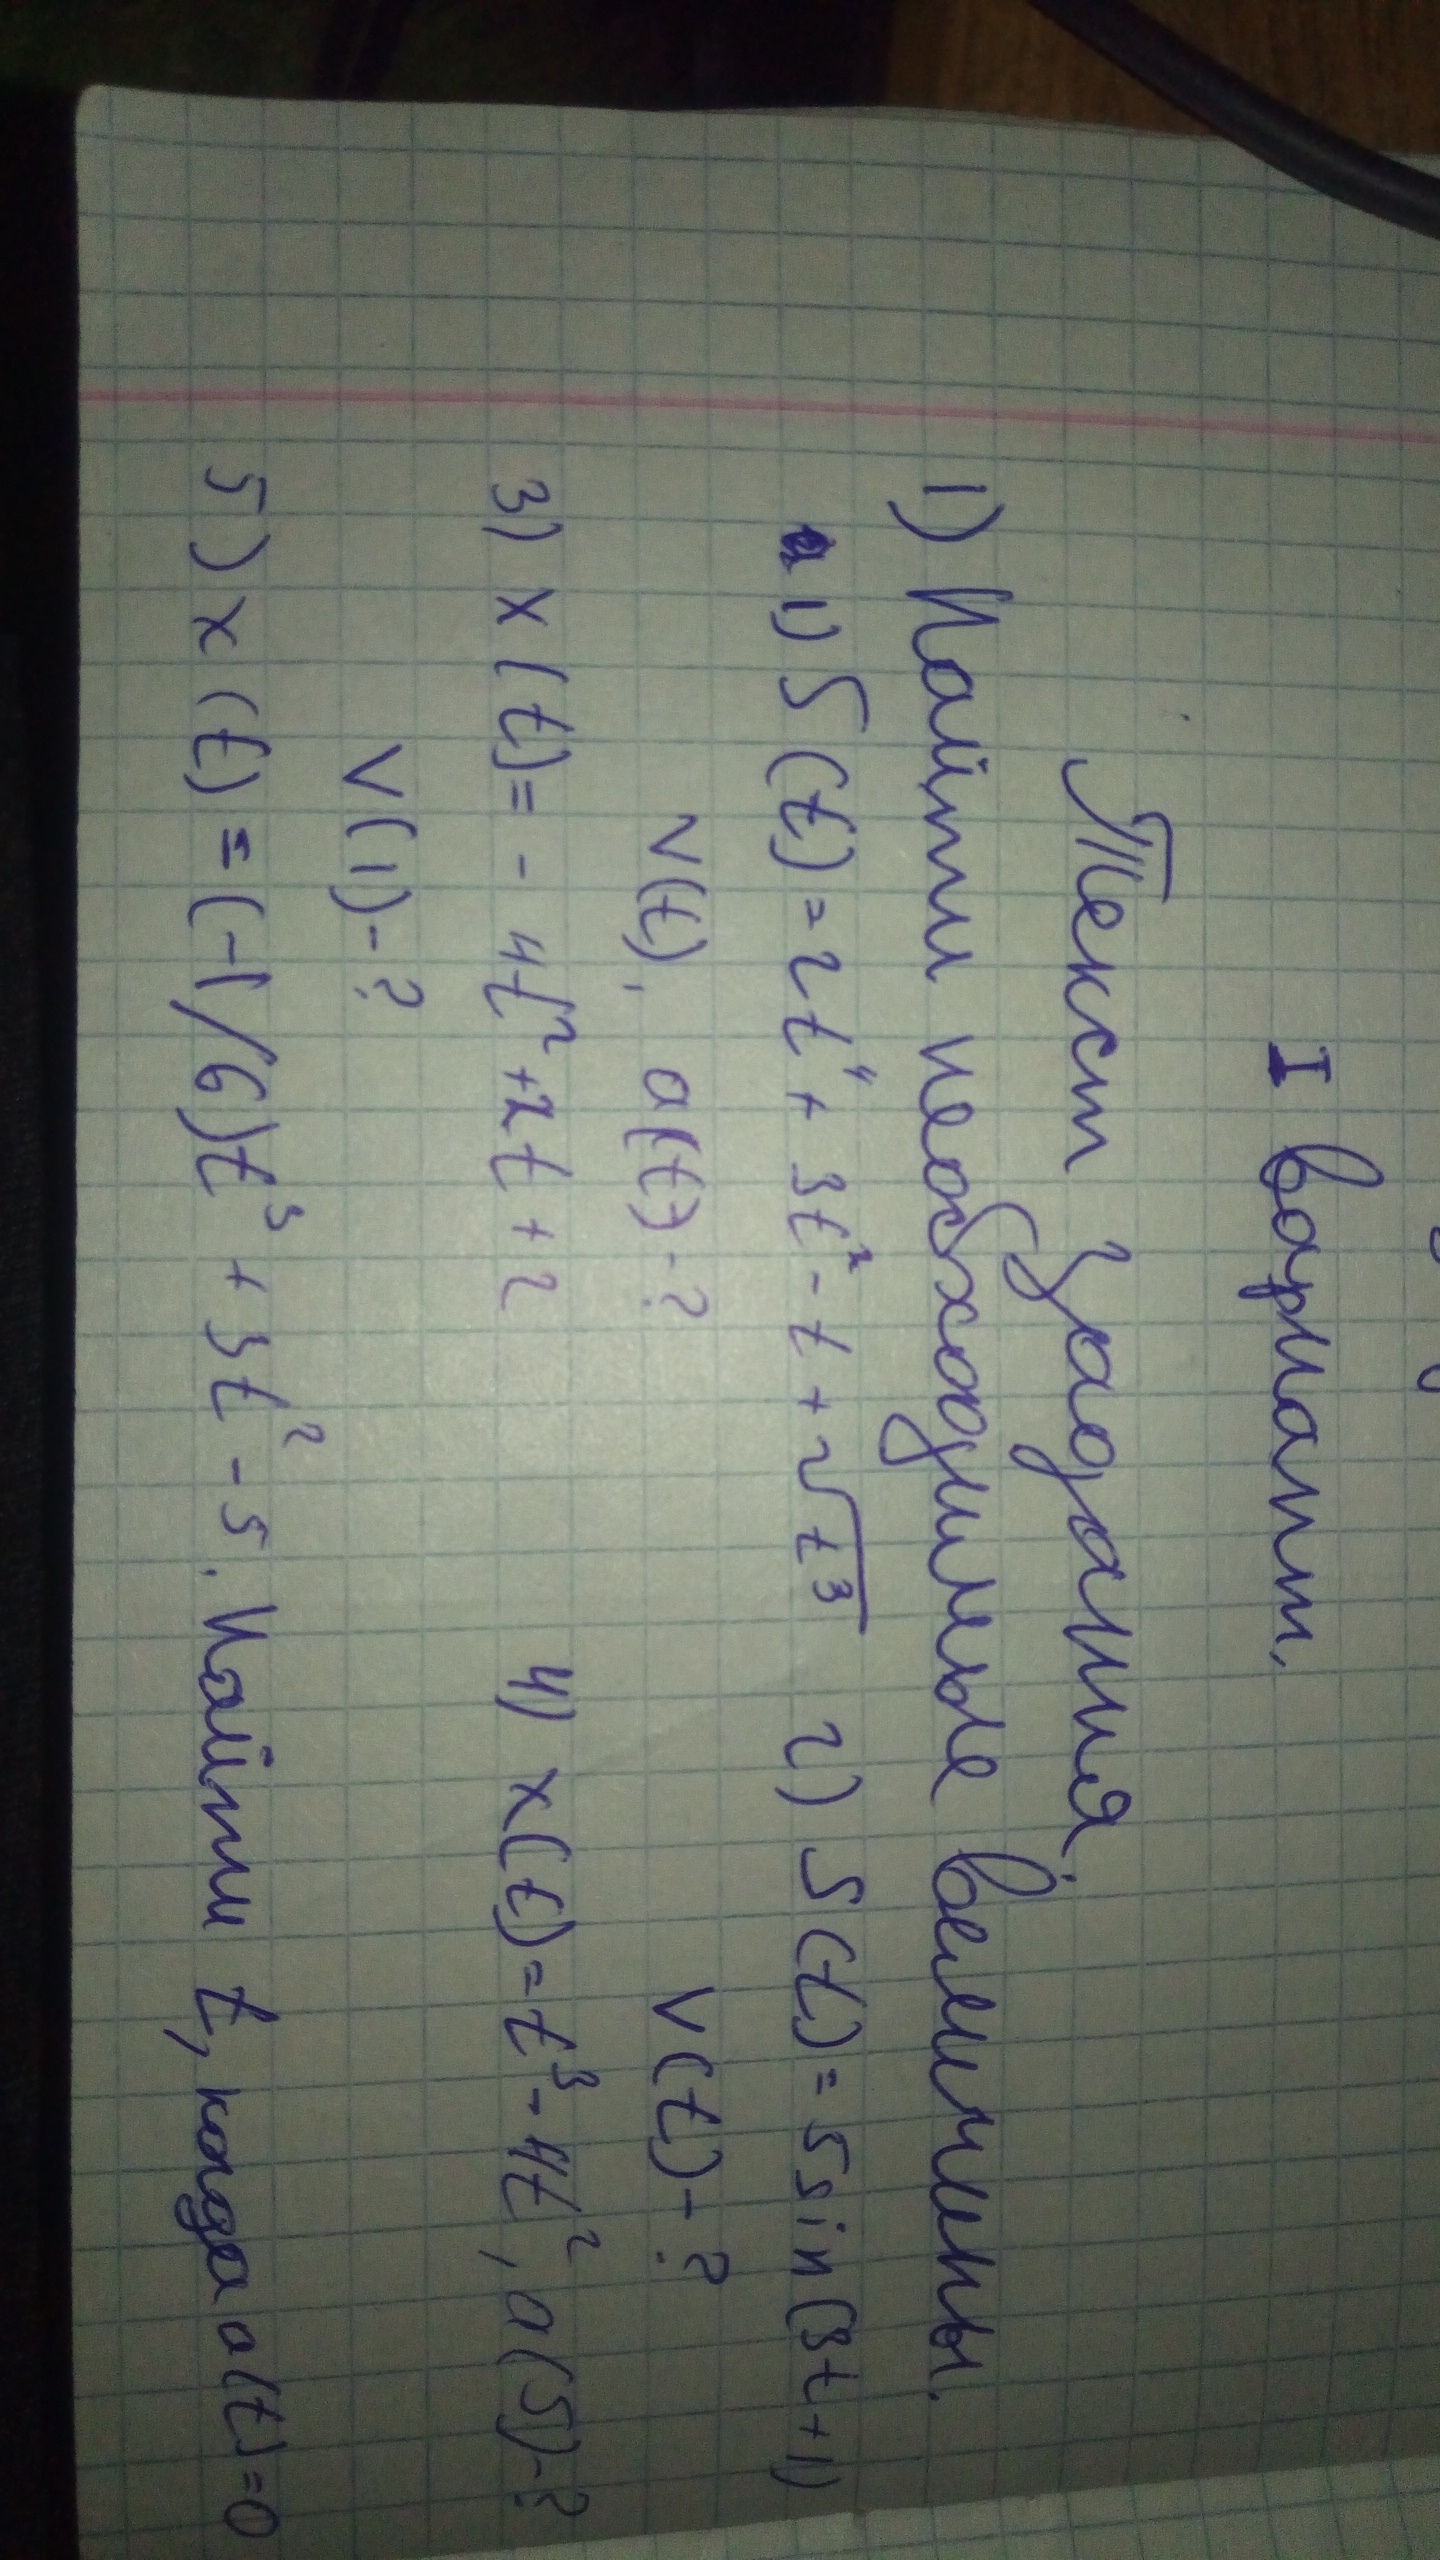 I Вариант.
Текст задания:
1) Найти необходимые величины.
1) S(t) = 2t⁴ + 3t² - t + 2√t³ 2) S(t) = 5 sin(3t+1)
V(t), a(t) - ? V(t) - ?
3) x(t) = - 4t² + 2t + 2 4) x(t) = t³ - 4t², a(5) - ?
V(1) - ?
5) x(t) = (-1/6)t³ + 3t² - 5. Найти t, когда a(t) = 0